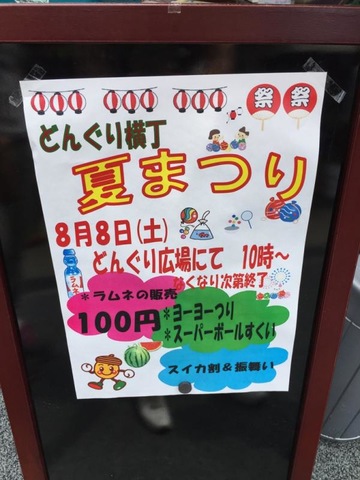 祭 祭
どんぐり横丁
夏まつり
8月8日(土)
どんぐり広場にて 10時~
なくなり次第終了
ラムネ
*ラムネの販売
100円
*ヨーヨーつり
*スーパーボールすくい
スイカ割&振舞い